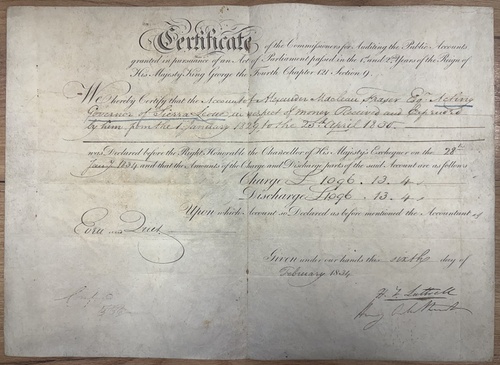 Certificate of the Commissioners for Auditing the Public Accounts
granted in pursuance of an Act of Parliament passed in the 1st and 2nd Years of the Reign of
His Majesty King George the Fourth Chapter 121 Section 9.
We Hereby Certify that the Account of Alexander Maclean Fraser Esqr Acting
Governor of Sierra Leone in respect of money Received and Expended
by him from the 1 January 1829 to the 20th April 1830.
was Declared before the Right Honorable the Chancellor of His Majesty's Exchequer on the 28th
Jany 1834 and that the Amounts of the Charge and Discharge parts of the said Account are as follows
Charge £ 1096. 13. 4
Discharge £1096. 13. 4
Upon which Account so Declared as before mentioned the Accountant is
Even and Quit.
Given under our hands this sixth day of
February 1834